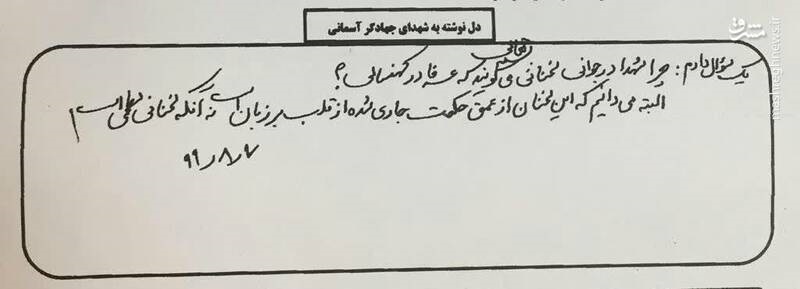 دل نوشته به شهدای جهادگر آسمانی
یک سؤال دارم: چرا شهدا در جوانی سخنانی می‌گویند که عرفا در کهنسالی؟
البته می‌دانیم که این سخنان از عمق حکمت جاری شده از قلب بر زبان است نه آنکه سخنانی سطحی است
۹۹/۸/۷
مشرق
mashreghnews.ir